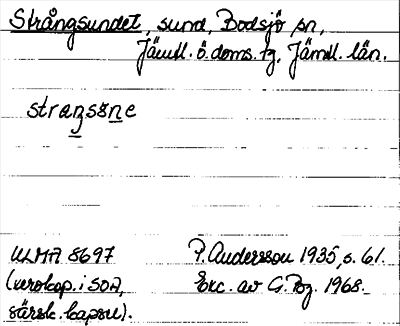 Strångsundet, sund, Bodsjö sn,
Jämtl. ö. doms. tg, Jämtl. län.
straŋsɷne
ULMA 8697 P. Andersson 1935, s. 61.
(verokop. i SOA, Exc. av G. Pzg. 1968.
särsk. kapsu).